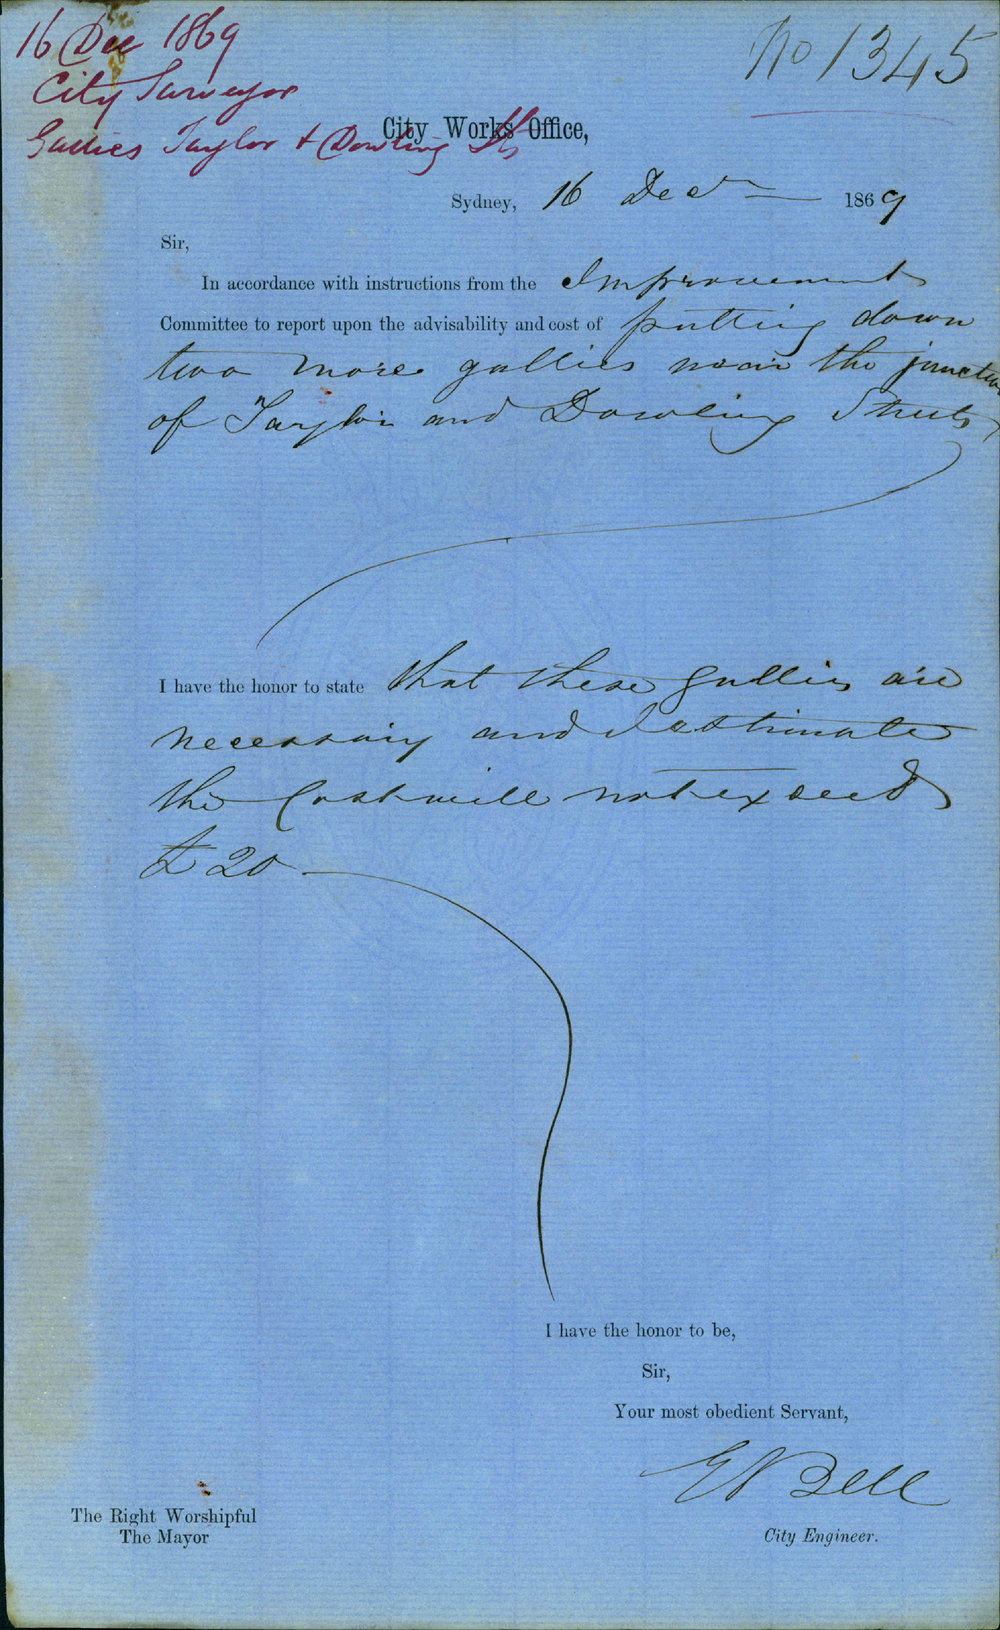 16 Dec 1869
City Surveyor
Gullies Taylor & Dowling Sts
No 1345
City Works Office,
Sydney, 16 Decr 1869
Sir,
In accordance with instructions from the Improvement
Committee to report upon the advisability and cost of putting down
two more gullies near the junction
of Taylor and Dowling Streets
I have the honor to state that these gullies are
necessary and I estimate
the Cost will not exceed
£20
I have the honor to be,
Sir,
Your most obedient Servant,
E Bell
City Engineer.
The Right Worshipful
The Mayor